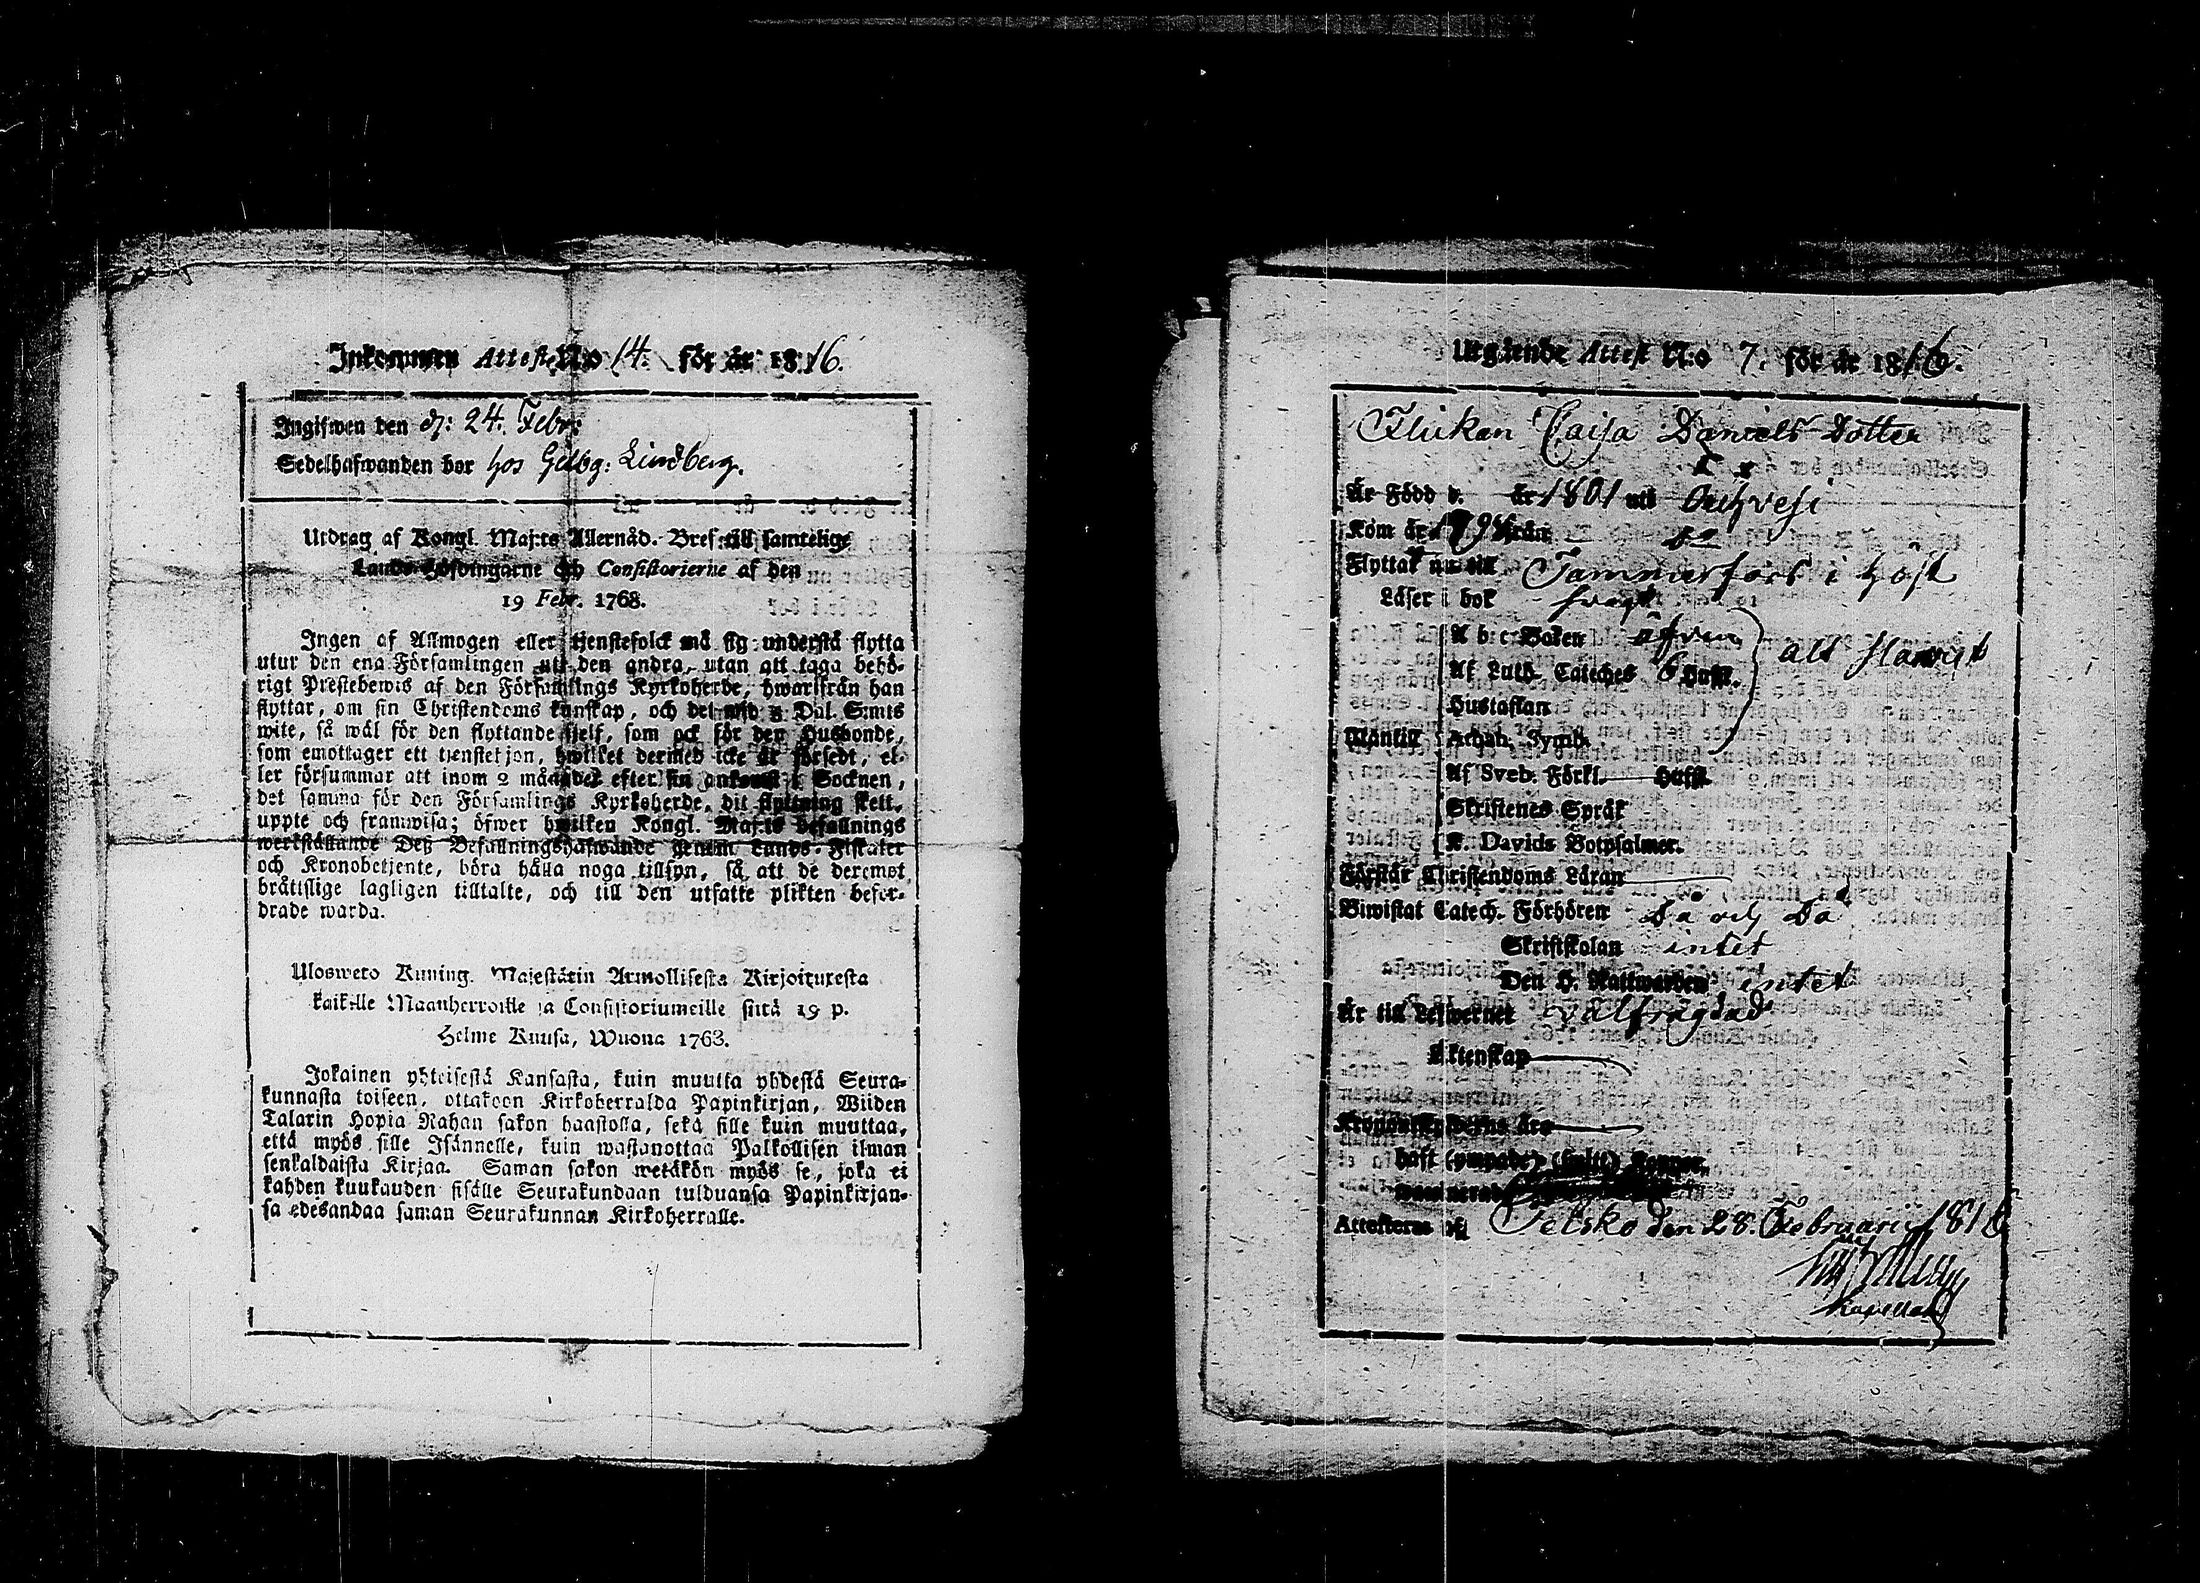 Inkommen Attest N:o 14. för år 1816.
Ingifwen den d: 24. Febr:
Sedelhafwanden bor hos Gelbg: Lindberg.
Utdrag af Kongl. Maj:ts Allernåd. Bref till samtelige
Lands-Höfdingarne och Consistorierne af den
19 Febr. 1768.
Ingen af Allmogen eller tjenstefolck må sig understå flytta
utur den ena Församlingen uti den andra, utan att taga behö-
rigt Prestebewis af den Församlings Kyrkoherde, hwarifrån han
flyttar, om sin Christendoms kunskap, och det wid 5 Dal. S:mts
wite, så wäl för den flyttande sjelf, som ock för den Husbonde,
som emottager ett tjenstehjon, hwilket dermed icke är försedt, el-
ler försummar att inom 2 månader efter sin ankomst i Socknen,
det samma för den Församlings Kyrkoherde, dit flyttning skett,
uppte och framwisa; öfwer hwilken Kongl. Maj:ts befallnings
werkställande Deß Befallningshafwande genom Lands-Fiskaler
och Kronobetjente, böra hålla noga tillsyn, så att de deremot
bråttslige lagligen tilltalte, och till den utsatte plikten befor-
drade warda.
Ulosweto Kuning. Majestätin Armollisesta Kirjoituxesta
kaikille Maanherroille ja Consistoriumeille siitä 19 p.
Helme Kuusa, Wuona 1763.
Jokainen yhteisestä Kansasta, kuin muutta yhdestä Seura-
kunnasta toiseen, ottakoon Kirkoherralda Papinkirjan, Wiiden
Talarin Hopia Rahan sakon haastolla, sekä sille kuin muuttaa,
että myös sille Isännelle, kuin wastanottaa Palkollisen ilman
senkaldaista Kirjaa. Saman sakon wetäkön myös se, joka ei
kahden kuukauden sisälle Seurakundaan tulduansa Papinkirjan-
sa edesandaa saman Seurakunnan Kirkoherralle.
Utgående Attest N:o 7. för år 1816.
Flickan Caisa Daniels Dotter
Är Född d. år 1801 uti
Kom år från
Flyttar nu till Tammerfors i höst
Läser i bok
A b c Boken äfven
Af Luth. Cateches 6 Hufst. alt Hans
Hustaflan
Athan. Symb.
Af Sveb. Förkl. Hufst.
Skriftenes Språk
K. Davids Botpsalmer.
Förstår Christendoms Läran
Biwistat Catech. Förhören då och då
Skriftskolan intet
Den H. Nattwarden intet
Är till Lefwernet välfrägdad
Äktenskap
haft (ympade) (sjelf) Koppor,
Attesteras af Tetsko den 28. Februarii 1816
Kapellan